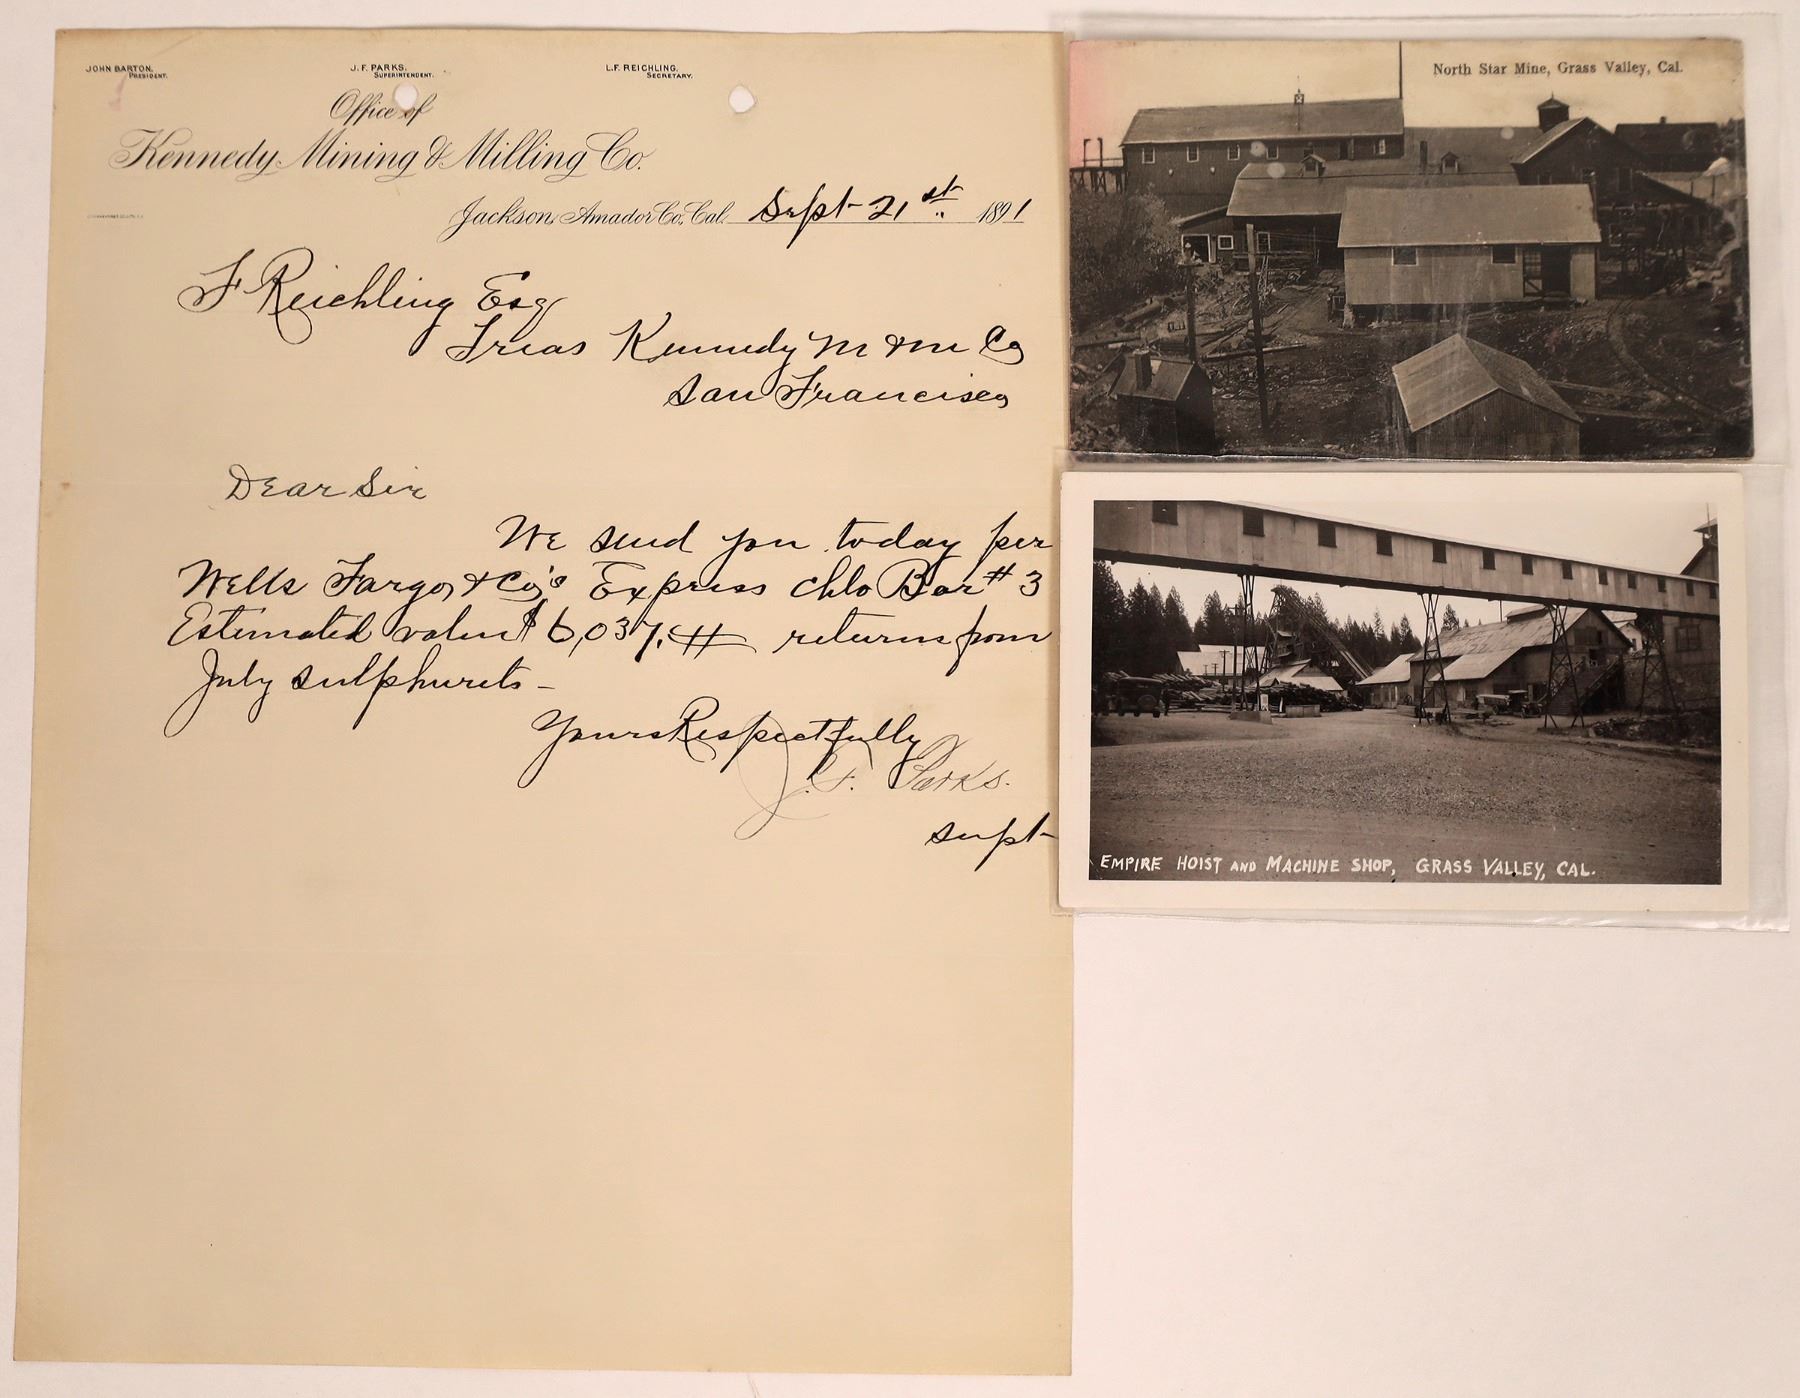 JOHN BARTON, PRESIDENT.
J. F. PARKS, SUPERINTENDENT.
L.F. REICHLING, SECRETARY.
Office of
Kennedy Mining & Milling Co.
Jackson, Amador Co., Cal. Sept 21st 1891
F Reichling Esq
Treas Kennedy M & M Co
San Francisco
Dear Sir
We send you today per
Wells Fargo, & Co's Express chlo Bar #3
Estimated value $6,037. returns from
July sulphurets-
Yours Respectfully
J. F. Parks.
supt-
North Star Mine, Grass Valley, Cal.
EMPIRE HOIST AND MACHINE SHOP, GRASS VALLEY, CAL.